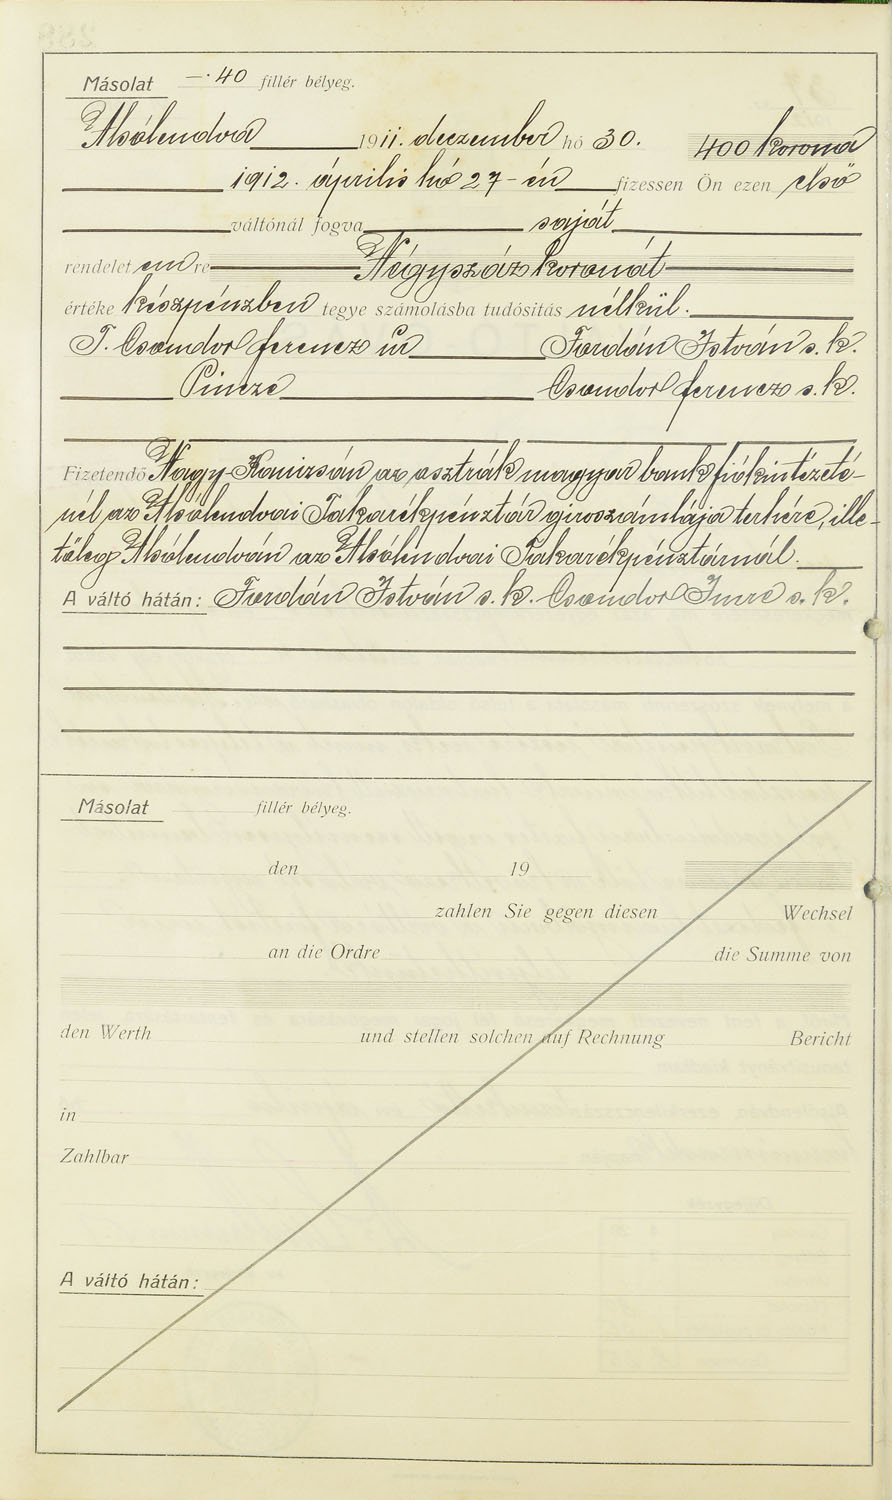 Másolat —·40 fillér bélyeg.
Alsólendva 1911. deczember hó 30. 400 korona
1912. április hó 27-én fizessen Ön ezen első
váltónál fogva saját
rendeletemre Négyszáz koronát
értéke készpénzben tegye számolásba tudósítás nélkül.
T. Csondor Ferencz úr Fordán István s. k.
Pincze Csondor Ferencz s. k.
Fizetendő Nagy-Kanizsán az osztrák magyar bank fiókintézeté-
nél az Alsólendvai Takarékpénztár giroszámlája terhére, ille-
tőleg Alsólendván az Alsólendvai Takarékpénztárnál.
A váltó hátán: Fordán István s. k. Csondor Imre s. k.
Másolat fillér bélyeg.
den 19
zahlen Sie gegen diesen Wechsel
an die Ordre die Summe von
den Werth und stellen solchen auf Rechnung Bericht
in
Zahlbar
A váltó hátán: